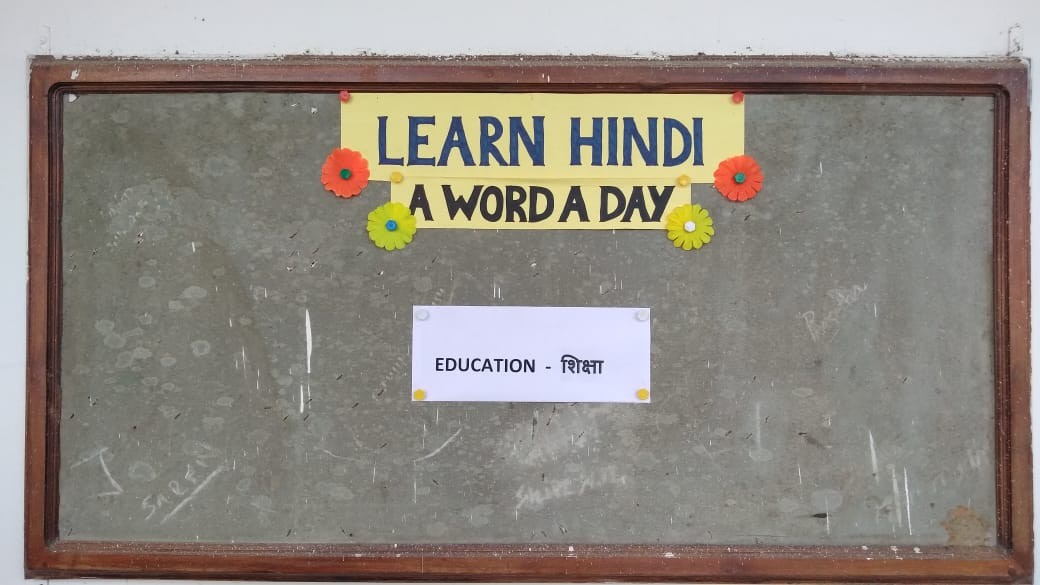 LEARN HINDI
A WORD A DAY
EDUCATION - शिक्षा